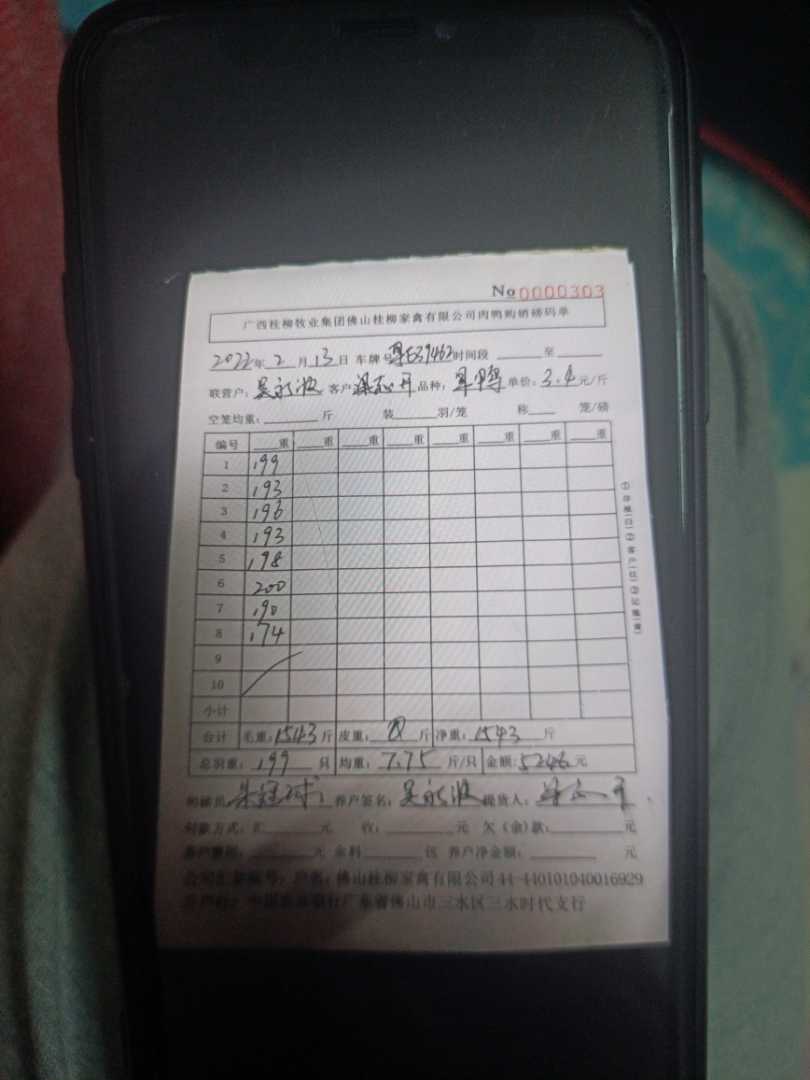 No 0000303
广西桂柳牧业集团佛山桂柳家禽有限公司肉鸭购销磅码单
2022年 2 月 13 日 车牌号 E39462 时间段 至
联营户: 吴永波 客户 品种: 单价: 3.4 元/斤
空笼均重: 斤 装 羽/笼 称 笼/磅
编号 重 重 重 重 重 重 重 重
1 199
2 193
3 196
4 193
5 198
6 200
7 190
8 174
9
10
小计
合计 毛重: 1543 斤 皮重: 斤 净重: 1543 斤
总羽重: 199 只 均重: 7.75 斤/只 金额: 5246 元
司磅员: 养户签名: 吴永波 提货人:
付款方式: 汇 元 收: 元 欠(余)款: 元
元 余料 包 养户净金额: 元
公司汇款账号: 户名: 佛山桂柳家禽有限公司 44-440101040016929
开户行: 中国农业银行广东省佛山市三水区三水时代支行